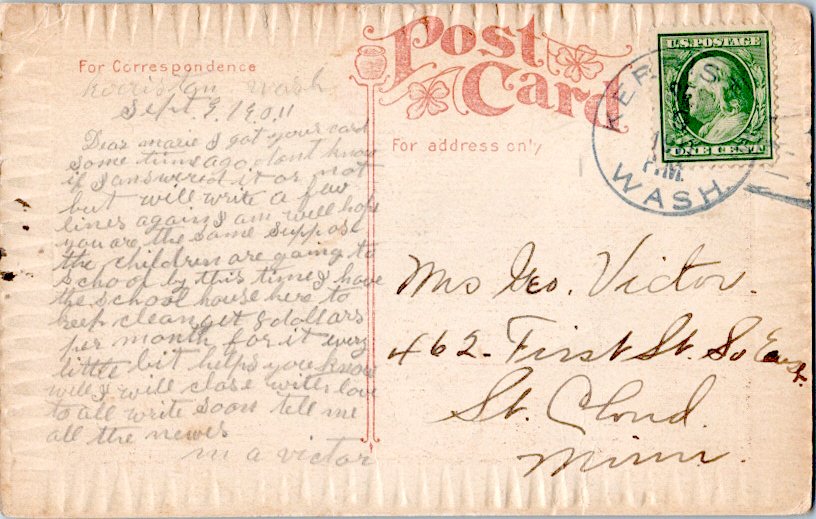 Post
Card
For Correspondence
For address only
U.S. POSTAGE
ONE CENT
KER
WASH
P.M.
Kerriston Wash
Sept 9, 1911
Dear marie I got your card
some time ago dont know
if I answered it or not
but will write a few
lines again I am well hope
you are the same suppose
the children are going to
school by this time I have
the school house here to
keep clean get 8 dollars
per month for it every
little bit helps you know
well I will close with love
to all write soon tell me
all the newes
m a victor
Mrs Geo. Victor.
462 - First St. So East.
St. Cloud.
Minn.